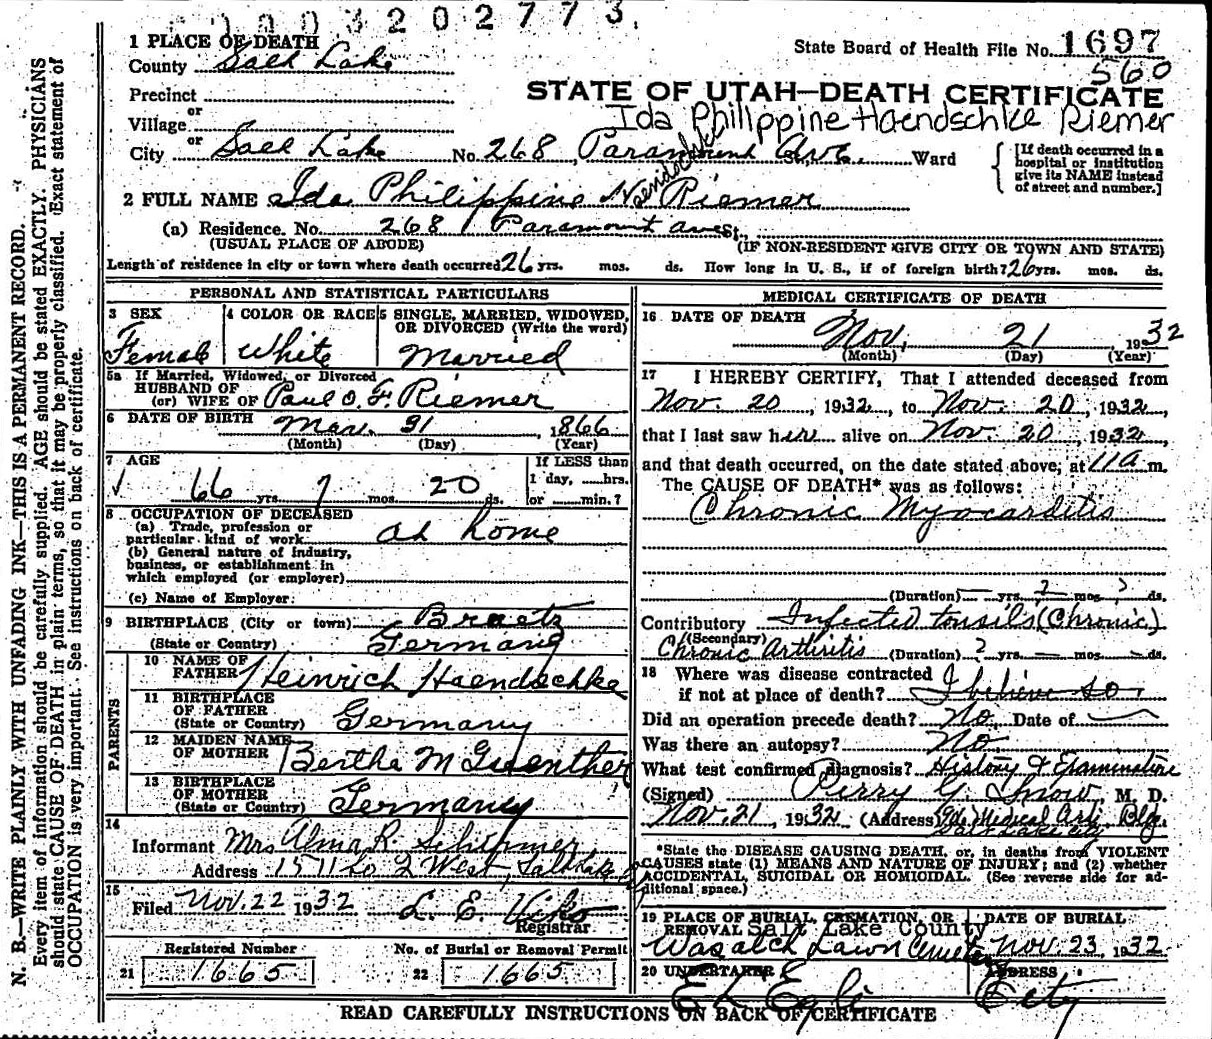 003202773
1 PLACE OF DEATH
County Salt Lake
State Board of Health File No. 1697
560
Precinct
or
Village
STATE OF UTAH—DEATH CERTIFICATE
Ida Philippine Haendschke Riemer
or
City Salt Lake No. 268 Paramount Ave. Ward
[If death occurred in a
hospital or institution
give its NAME instead
of street and number.]
2 FULL NAME Ida Philippine H Riemer
(a) Residence. No. 268 Paramount ave St.
(USUAL PLACE OF ABODE) (IF NON-RESIDENT GIVE CITY OR TOWN AND STATE)
Length of residence in city or town where death occurred 26 yrs. mos. ds. How long in U. S., if of foreign birth? 26 yrs. mos. ds.
PERSONAL AND STATISTICAL PARTICULARS
3 SEX 4 COLOR OR RACE 5 SINGLE, MARRIED, WIDOWED,
OR DIVORCED (Write the word)
Female White Married
5a If Married, Widowed, or Divorced
HUSBAND OF
(or) WIFE OF Paul O. F. Riemer
6 DATE OF BIRTH Mar. 31, 1866
(Month) (Day) (Year)
7 AGE If LESS than
1 day, hrs.
66 yrs. 7 mos. 20 ds. or min.?
8 OCCUPATION OF DECEASED
(a) Trade, profession or
particular kind of work at home
(b) General nature of industry,
business, or establishment in
which employed (or employer)
(c) Name of Employer:
9 BIRTHPLACE (City or town) Braetz
(State or Country) Germany
PARENTS
10 NAME OF
FATHER Heinrich Haendschke
11 BIRTHPLACE
OF FATHER
(State or Country) Germany
12 MAIDEN NAME
OF MOTHER Bertha M Guenther
13 BIRTHPLACE
OF MOTHER
(State or Country) Germany
14
Informant Mrs Alma R.
Address 1571 So 2 West, Salt Lake
15
Filed Nov. 22 1932 L. E.
Registrar
Registered Number No. of Burial or Removal Permit
21 1665 22 1665
MEDICAL CERTIFICATE OF DEATH
16 DATE OF DEATH
Nov. 21 1932
(Month) (Day) (Year)
17 I HEREBY CERTIFY, That I attended deceased from
Nov. 20, 1932, to Nov. 20, 1932,
that I last saw her alive on Nov. 20, 1932,
and that death occurred, on the date stated above, at 11 a m.
The CAUSE OF DEATH* was as follows:
Chronic Myocarditis
(Duration) — yrs. ? mos. ? ds.
Contributory Infected tonsils (Chronic)
(Secondary)
Chronic Arthritis (Duration) ? yrs. — mos. — ds.
18 Where was disease contracted
if not at place of death? I believe so.
Did an operation precede death? No. Date of —
Was there an autopsy? No.
What test confirmed diagnosis? History & Examination
(Signed) Perry G. Snow M. D.
Nov. 21, 1932 (Address) Medical Arts Bldg.
Salt Lake City
*State the DISEASE CAUSING DEATH, or, in deaths from VIOLENT
CAUSES state (1) MEANS AND NATURE OF INJURY; and (2) whether
ACCIDENTAL, SUICIDAL OR HOMICIDAL. (See reverse side for ad-
ditional space.)
19 PLACE OF BURIAL, CREMATION, OR DATE OF BURIAL
REMOVAL Salt Lake County
Wasatch Lawn Cemetery Nov. 23, 1932
20 UNDERTAKER ADDRESS
E L Egli City
READ CAREFULLY INSTRUCTIONS ON BACK OF CERTIFICATE
N. B.—WRITE PLAINLY WITH UNFADING INK—THIS IS A PERMANENT RECORD.
Every item of information should be carefully supplied. AGE should be stated EXACTLY. PHYSICIANS
should state CAUSE OF DEATH in plain terms, so that it may be properly classified. Exact statement of
OCCUPATION is very important. See instructions on back of certificate.